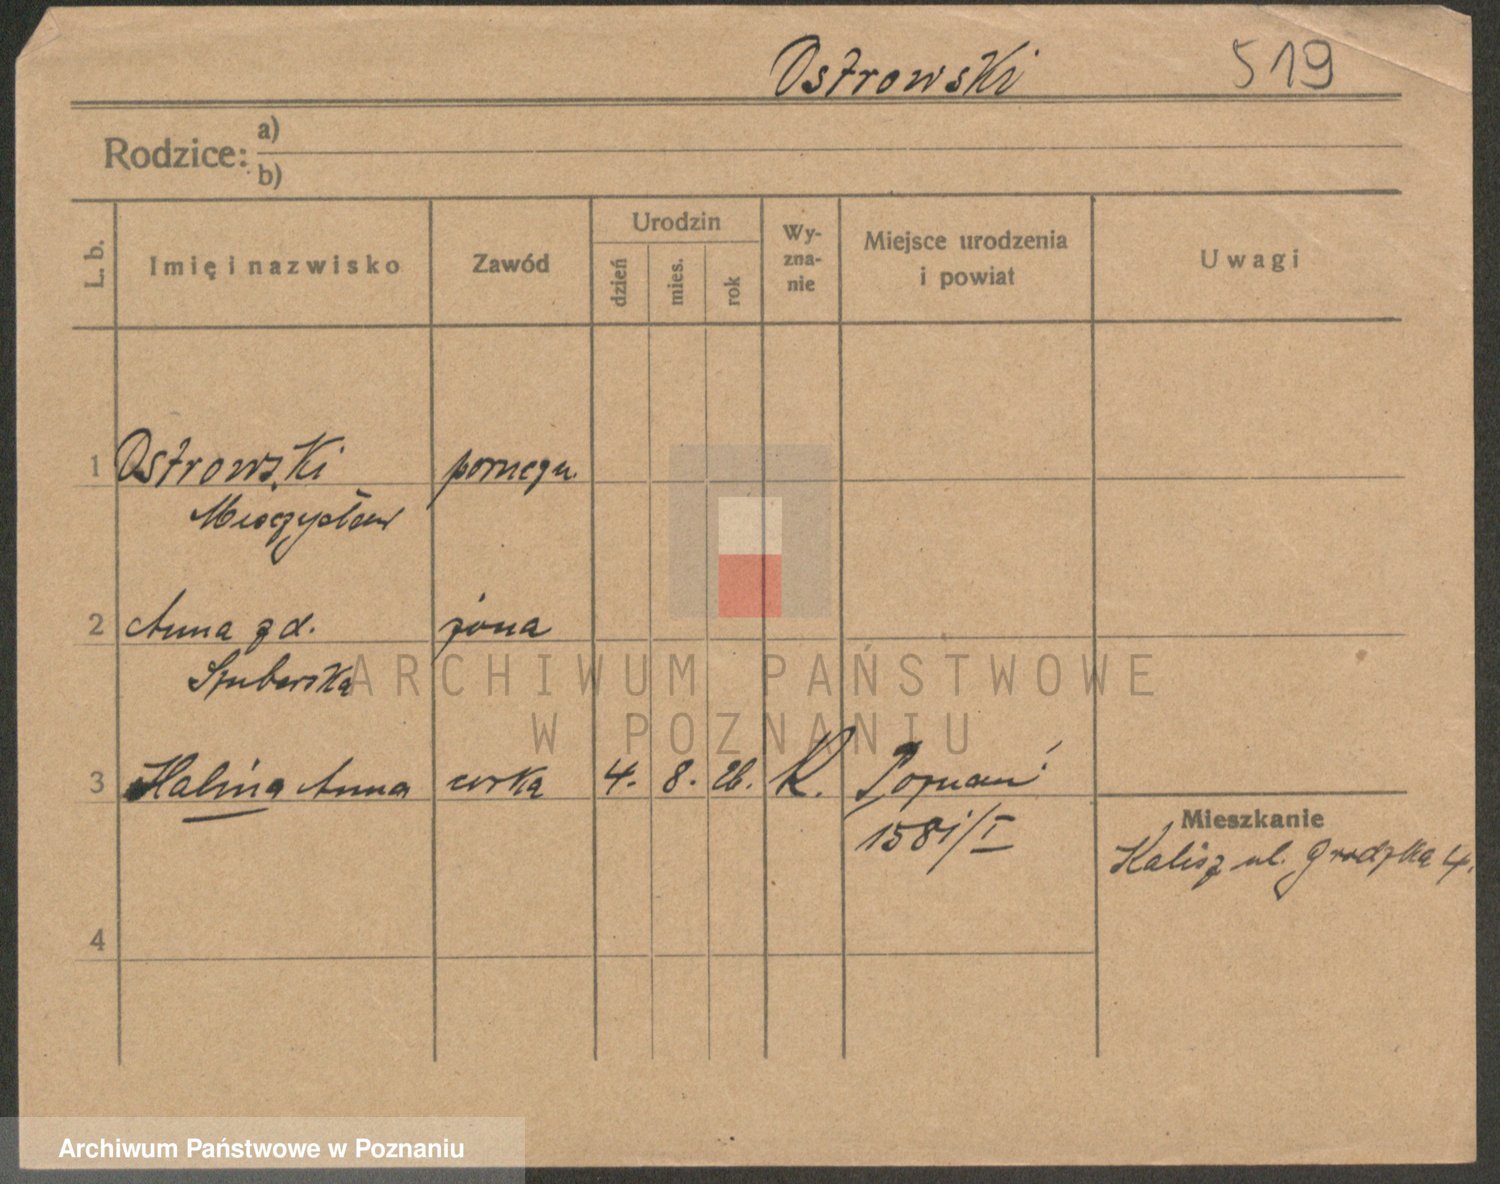 Ostrowski 519
Rodzice: a)
b)
L. b. Imię i nazwisko Zawód Urodzin dzień mies. rok Wy-zna-nie Miejsce urodzenia i powiat Uwagi
1 Ostrowski
Mieczysław
2 Anna z d. żona
3 Halina Anna córka 4. 8. 26. K. Poznań
1581/I
Mieszkanie
Kalisz ul. Grodzka 4.
4
ARCHIWUM PAŃSTWOWE
W POZNANIU
Archiwum Państwowe w Poznaniu